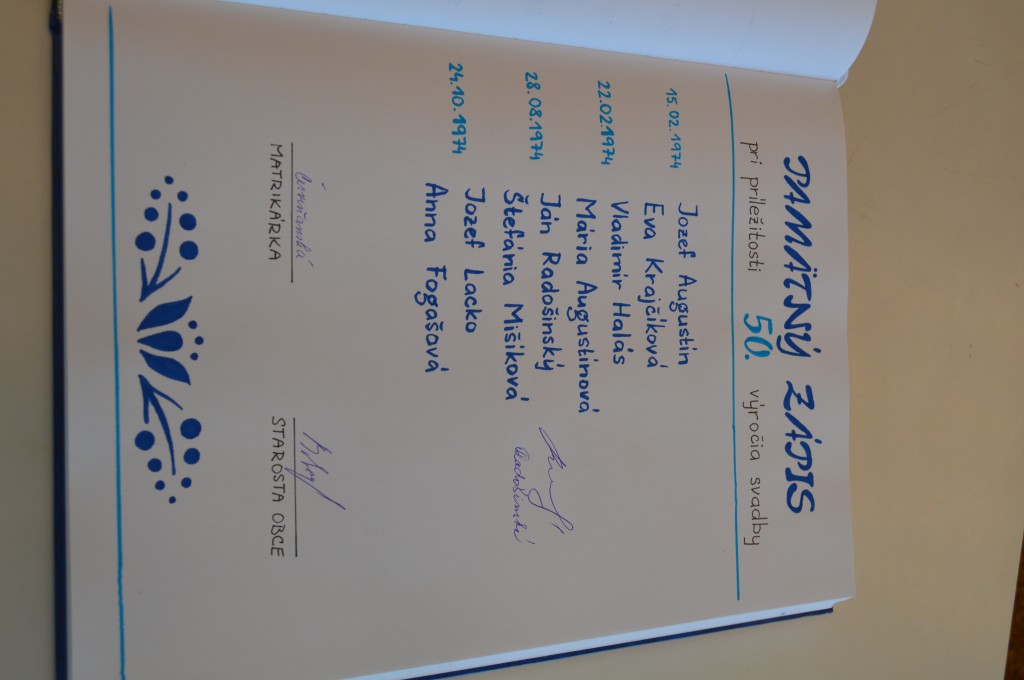 PAMÄTNÝ ZÁPIS
pri príležitosti 50. výročia svadby
15.02.1974 Jozef Augustín
Eva Krajčíková
22.02.1974 Vladimír Halás
Mária Augustínová
28.08.1974 Ján Radošinský
Štefánia Mišíková
24.10.1974 Jozef Lacko
Anna Fogašová
MATRIKÁRKA STAROSTA OBCE